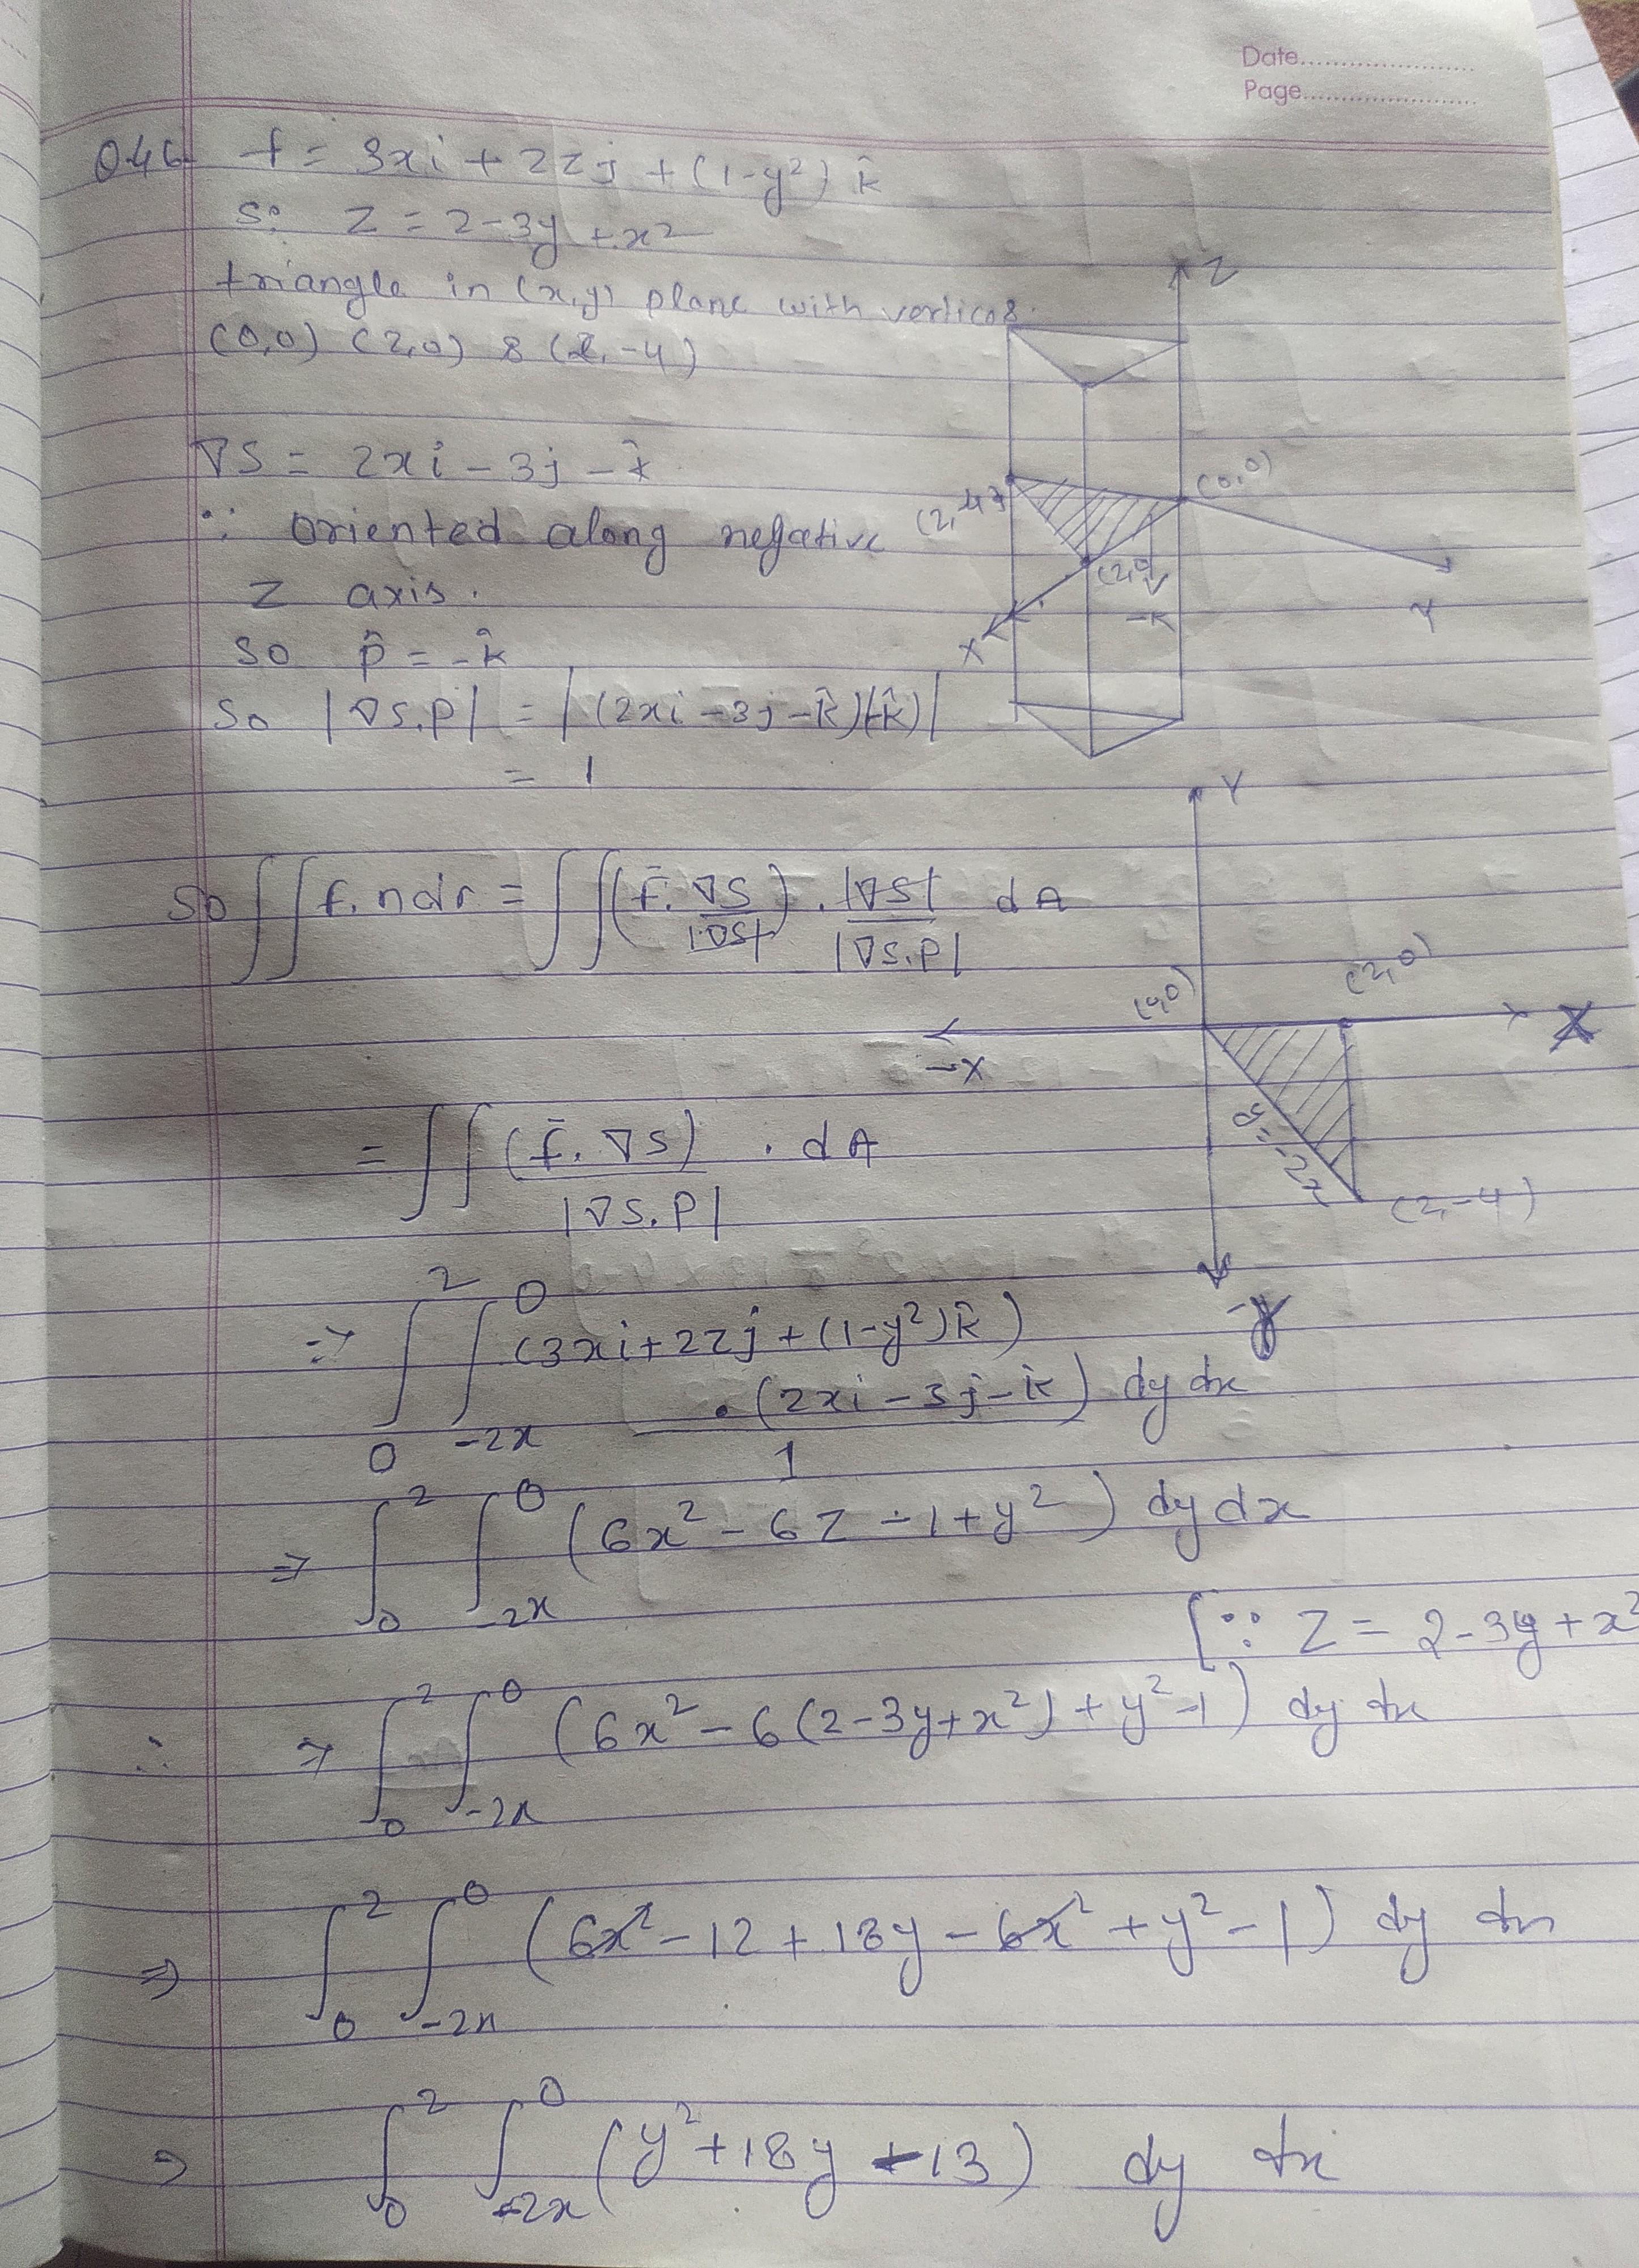 Date.............................
Page.............................
Q.46 f = 3xi + 2zj + (1-y²) k̂
S: z = 2-3y + x²
triangle in (x,y) plane with vertices.
(0,0) (2,0) & (2,-4)
∇S = 2xi - 3j - k̂
∵ oriented along negative
z axis.
So p̂ = -k̂
So |∇S.P| = |(2xi - 3j - k̂)(-k̂)|
= 1
Z
(0,0)
(2,-4)
(2,0)
-k
X
Y
So ∬ f.n dr = ∬ (f̄. ∇S/|∇S|) . |∇S|/|∇S.P| dA
Y
(0,0)
(2,0)
X
-X
y=-2x
(2,-4)
-Y
= ∬ (f̄. ∇S)/|∇S.P| . dA
⇒ ∫₀² ∫₋₂ₓ⁰ (3xi + 2zj + (1-y²)k̂)
. (2xi - 3j - k̂)/1 dy dx
⇒ ∫₀² ∫₋₂ₓ⁰ (6x² - 6z - 1 + y²) dy dx
[∵ z = 2-3y + x²
∴ ⇒ ∫₀² ∫₋₂ₓ⁰ (6x² - 6(2-3y+x²) + y² - 1) dy dx
⇒ ∫₀² ∫₋₂ₓ⁰ (6x² - 12 + 18y - 6x² + y² - 1) dy dx
⇒ ∫₀² ∫₋₂ₓ⁰ (y² + 18y - 13) dy dx